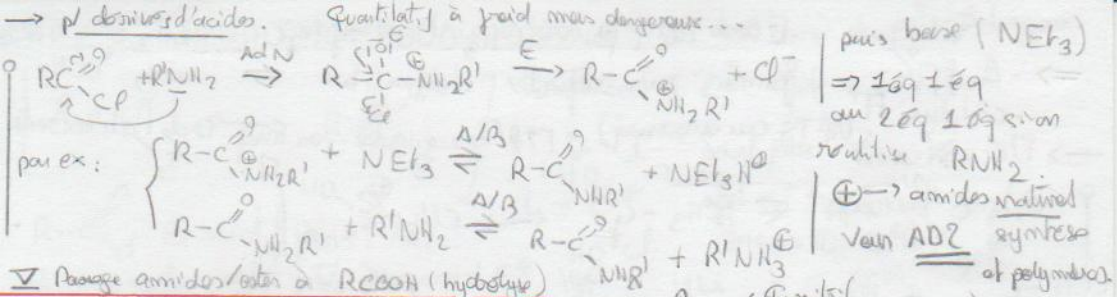 → p/ dérivés d'acides. Quantitatif à froid mais dangereux...
RC O Cl + R'NH2 AdN → R C O Cl ⊕ NH2R' E → R-C O ⊕ NH2R' + Cl⁻
puis base (NEt3)
⇒ 1éq 1éq
ou 2éq 1éq si on
réutilise RNH2.
par ex: R-C O ⊕ NH2R' + NEt3 A/B ⇌ R-C O NHR' + NEt3H⊕
R-C O NH2R' + R'NH2 A/B ⇌ R-C O NHR' + R'NH3⊕
⊕→ amides
Voir AD2 synthèse
et polymères
V Passage amides/ester à RCOOH (hydrolyse)